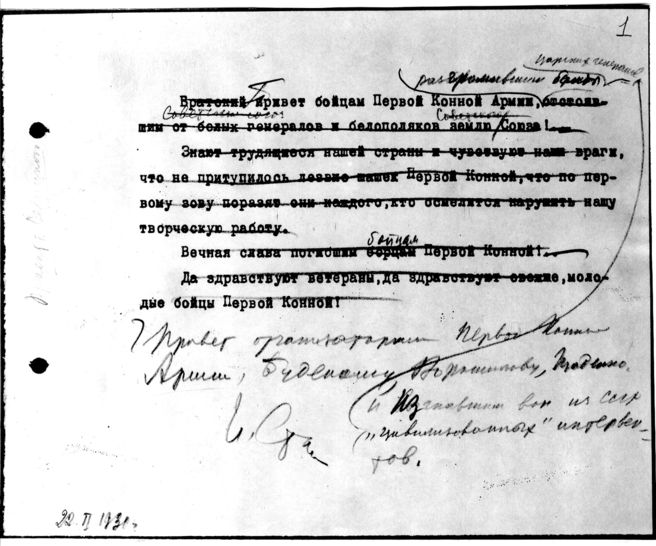 1
царских генералов
разгромившим банды
Братский Привет бойцам Первой Конной Армии, отстояв-
Советский союз
Советского
шим от белых генералов и белополяков землю Союза!
Знают трудящиеся нашей страны и чувствуют наши враги,
что не притупилось лезвие шашек Первой Конной, что по пер-
вому зову поразят они каждого, кто осмелится нарушить нашу
творческую работу.
бойцам
Вечная слава погибшим борцам Первой Конной!
Да здравствуют ветераны, да здравствуют свежие, моло-
дые бойцы Первой Конной!
Привет организаторам Первой Конной
Армии, Буденному Ворошилову, Щаденко.
и Изгнавшим вон из СССР
И. Стали
„цивилизованных" интервен-
тов.